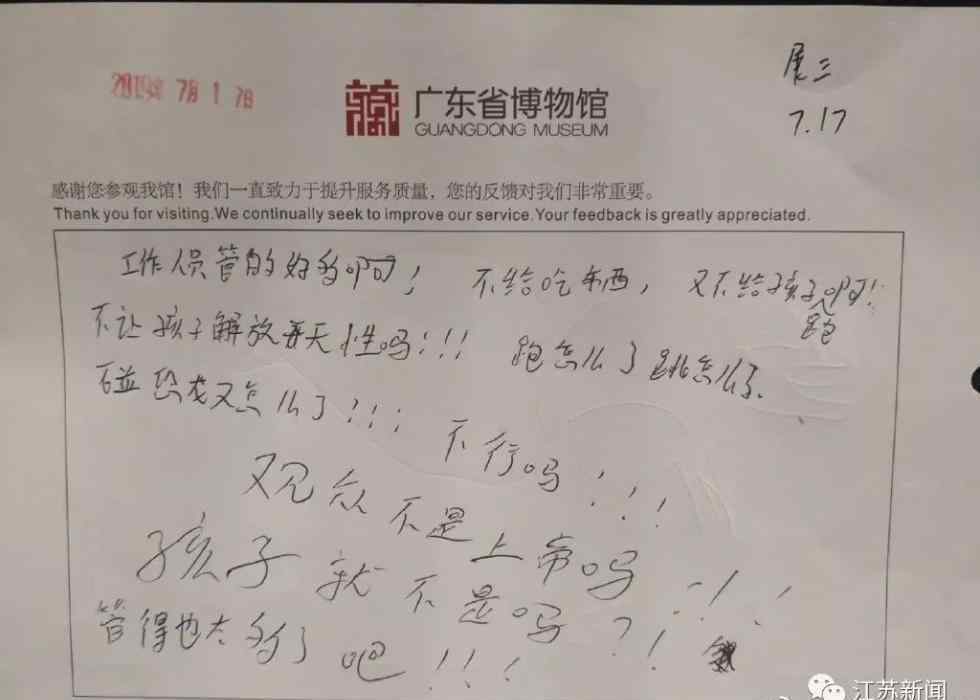 展三
2019年 7月 17日
广东省博物馆
GUANGDONG MUSEUM
7.17
感谢您参观我馆！我们一直致力于提升服务质量，您的反馈对我们非常重要。
Thank you for visiting.We continually seek to improve our service.Your feedback is greatly appreciated.
工作人员管的好多啊！ 不给吃东西，又不给孩子跑啊!!
不让孩子解放天性吗!!! 跑怎么了跳怎么了.
碰恐龙又怎么了!!!
不行吗!!!
观众不是上帝吗!!!
孩子就不是吗?!
管得也太多了吧!!!
江苏新闻